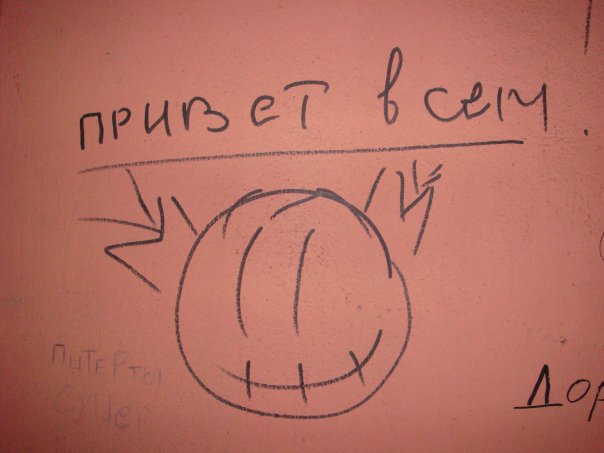 привет всем.
Питер ты
супер
Дор